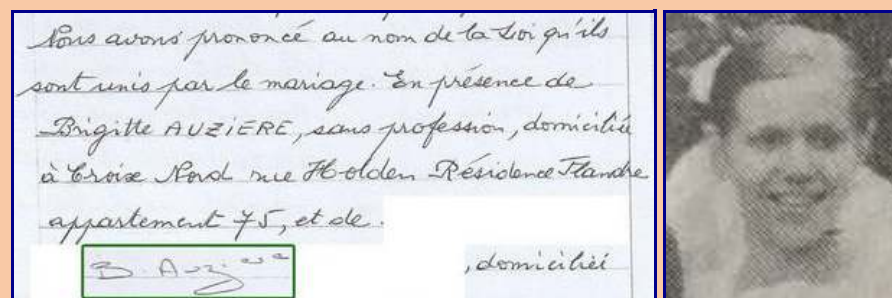 Nous avons prononcé au nom de la Loi qu'ils
sont unis par le mariage. En présence de
Brigitte AUZIERE, sans profession, domiciliée
à Croix Nord rue Holden Résidence Flandre
appartement 75, et de
B. Auziere
, domicilié